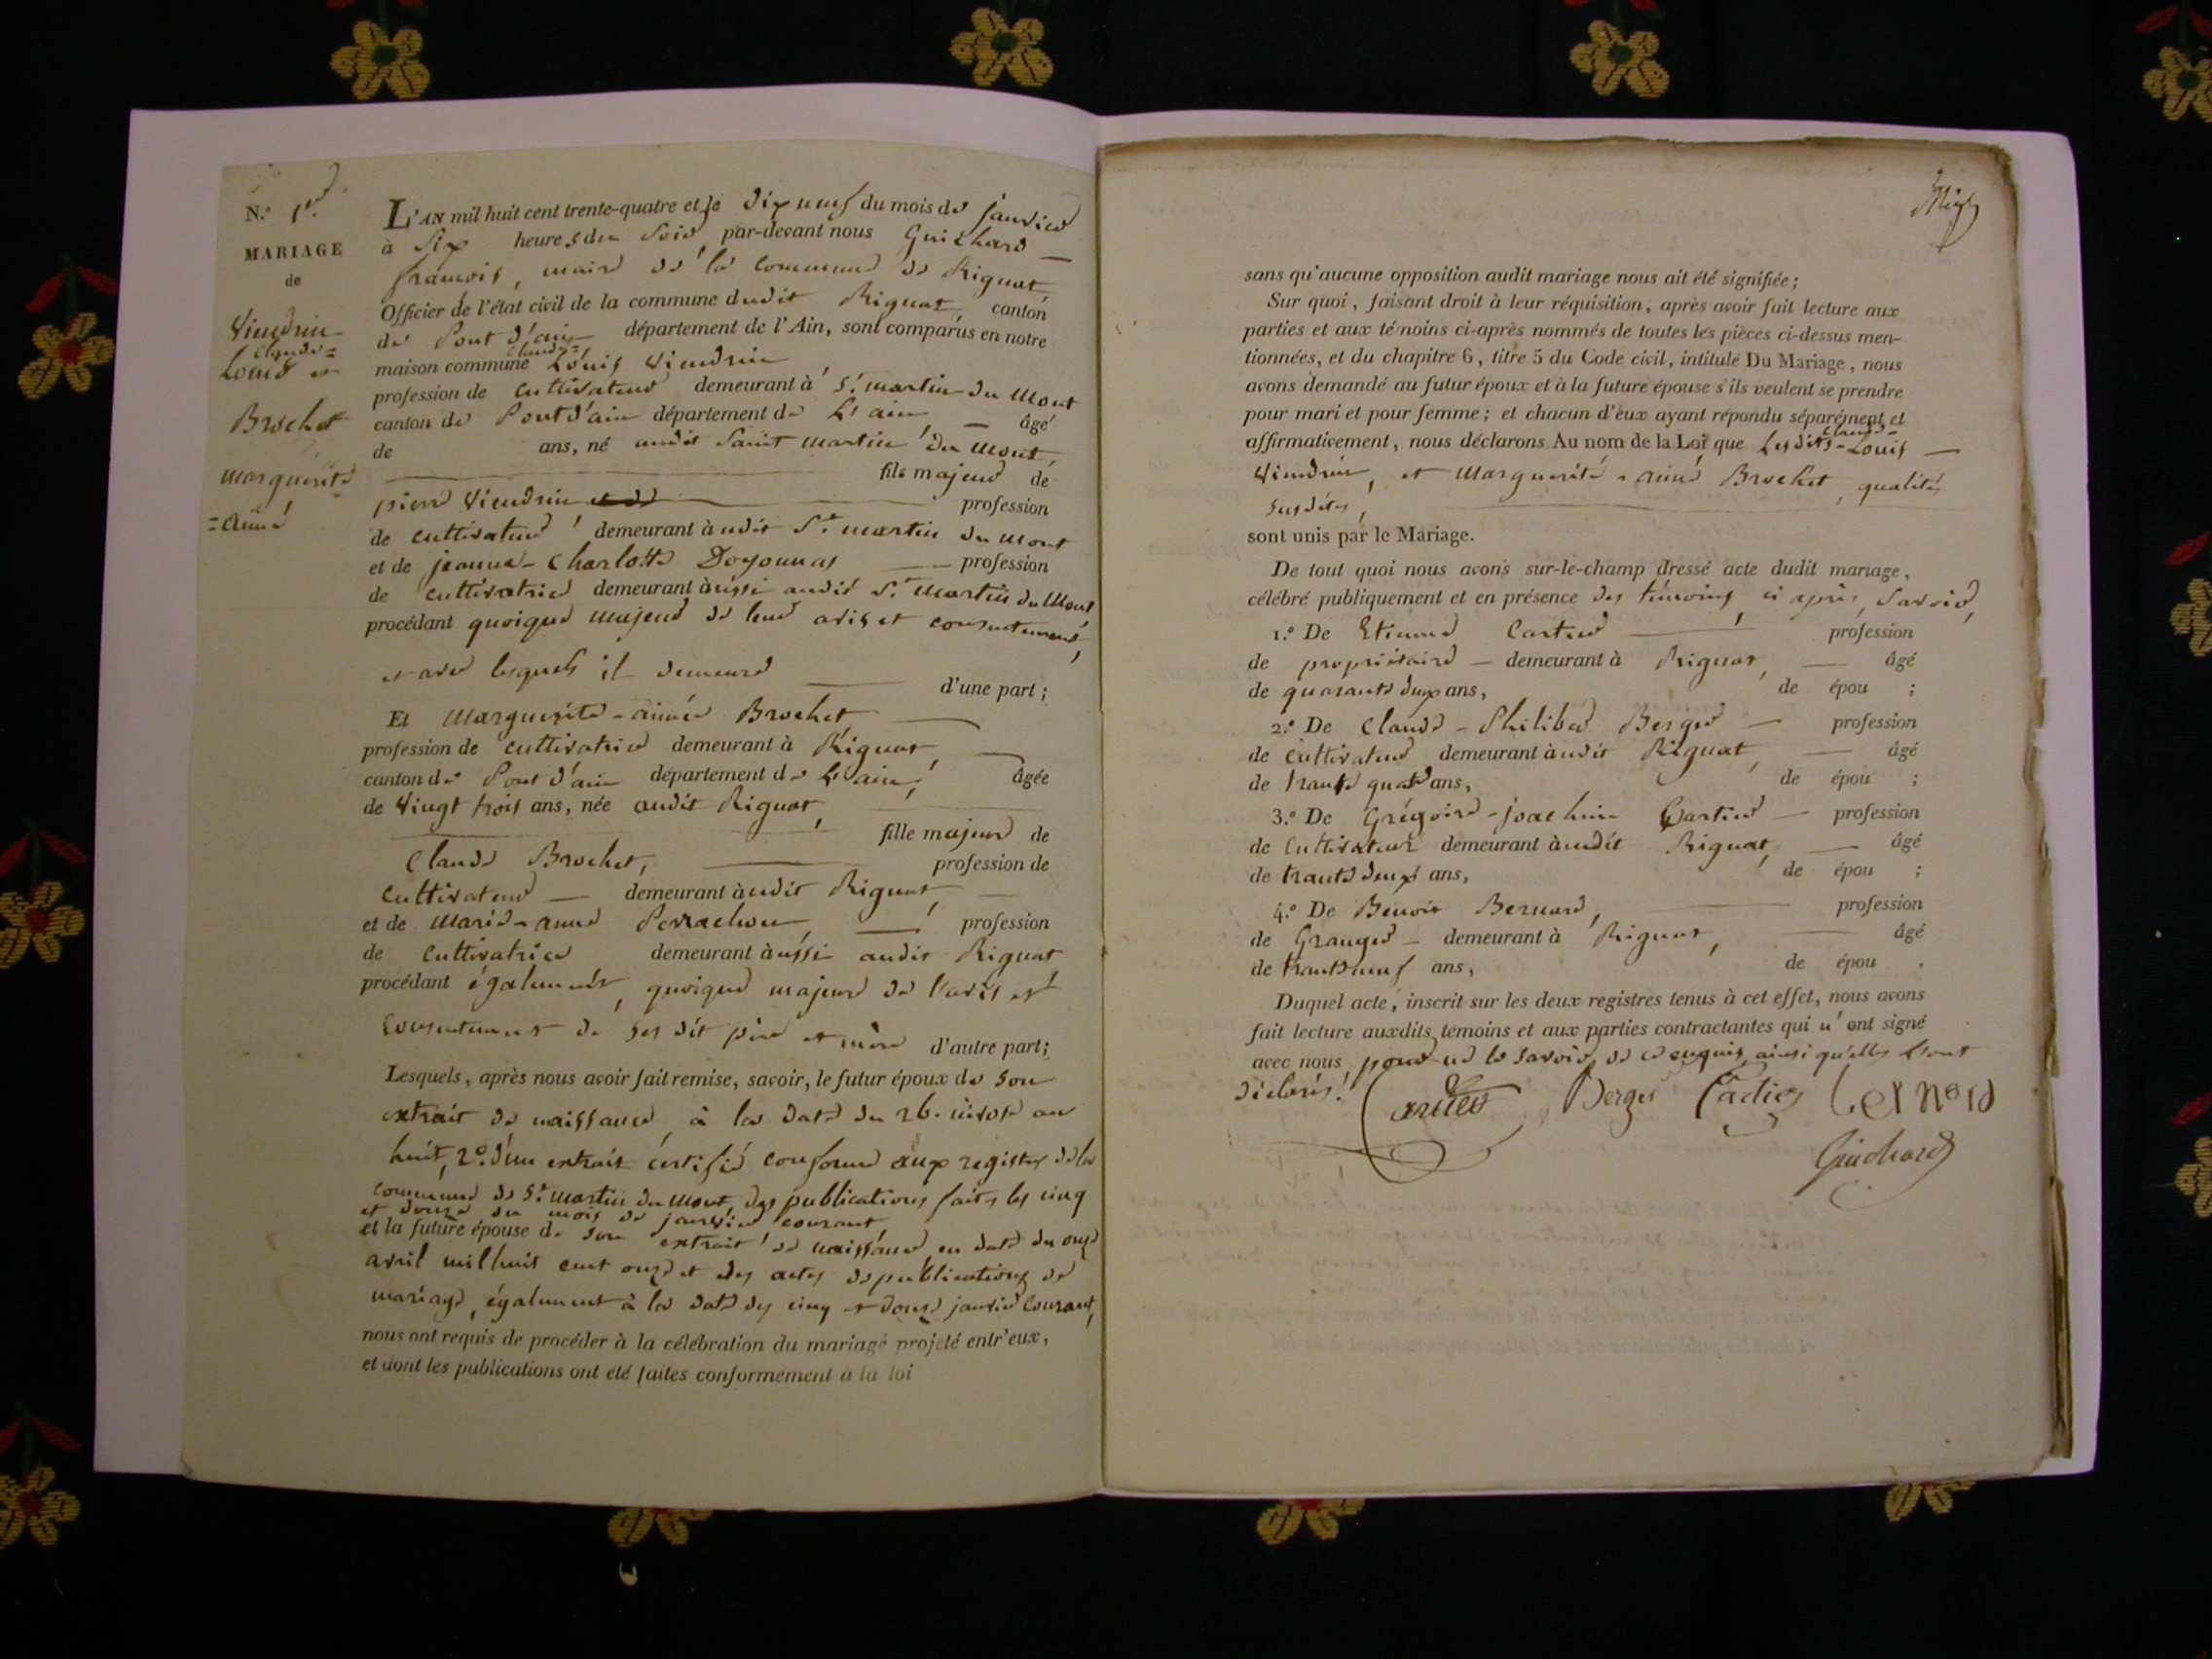 N.º 1er
MARIAGE
de
Viendrin
Claude=
Louis et
Brochet
marguerite
=aimé
L'AN mil huit cent trente-quatre et le dix neuf du mois de janvier
à six heures du soir, par-devant nous Guichard
françois, maire de la commune de Rignat,
Officier de l'état civil de la commune dudit Rignat, canton
de Pont d'ain département de l'Ain, sont comparus en notre
maison commune Claude= Louis Viendrin
profession de cultivateur demeurant à St martin du Mont
canton de Pont d'ain département de L'ain, âgé
de ans, né audit Saint martin du mont,
fils majeur de
pierre Viendrin
profession
de cultivateur, demeurant à udit St martin du mont
et de jeanne-Charlotte Doyonnas profession
de cultivatrice demeurant à ussi audit St martin du Mont
procédant quoique majeur de leur avis et consentement,
et avec lesquels il demeure d'une part ;
Et Marguerite-aimée Brochet
profession de cultivatrice demeurant à Rignat,
canton de Pont d'ain département de L'ain, âgée
de vingt trois ans, née audit Rignat,
fille majeure de
Claude Brochet, profession de
cultivateur demeurant à udit Rignat,
et de Marie-anne Perrachon, profession
de cultivatrice demeurant à ussi audit Rignat
procédant également, quoique majeure de l'avis et
consentement de ses dit père et mère d'autre part;
Lesquels, après nous avoir fait remise, savoir, le futur époux de son
extrait de naissance, à la date du 26. nivose an
huit, 2º. d'un extrait certifié conforme aux registres de la
commune de St martin du Mont, des publications faites les cinq
et douze du mois de janvier courant
et la future épouse de son extrait de naissance, en date du onze
avril mil huit cent onze et des actes de publications de
mariage, également à la date des cinq et douze janvier courant,
nous ont requis de procéder à la célébration du mariage projeté entr'eux,
et dont les publications ont été faites conformément à la loi
sans qu'aucune opposition audit mariage nous ait été signifiée ;
Sur quoi, faisant droit à leur réquisition, après avoir fait lecture aux
parties et aux témoins ci-après nommés de toutes les pièces ci-dessus men-
tionnées, et du chapitre 6, titre 5 du Code civil, intitulé Du Mariage, nous
avons demandé au futur époux et à la future épouse s'ils veulent se prendre
pour mari et pour femme ; et chacun d'eux ayant répondu séparément et
affirmativement, nous déclarons Au nom de la Loi que Lesdits Claude= Louis
Viendrin, et Marguerite=aimé Brochet, qualités
susdites,
sont unis par le Mariage.
De tout quoi nous avons sur-le-champ dressé acte dudit mariage,
célébré publiquement et en présence des témoins, ci après, Savoir,
1.º De Etienne Cartier profession
de propriétaire demeurant à Rignat, âgé
de quarante deux ans, de épou ;
2.º De Claude-Philibert Berger profession
de cultivateur demeurant à udit Rignat, âgé
de trante quatre ans, de épou ;
3.º De Grégoire-joachim Cartier profession
de Cultivateur demeurant à udit Rignat, âgé
de trante deux ans, de épou ;
4.º De Benoit Bernard, profession
de Granger demeurant à Rignat, âgé
de trante neuf ans, de épou .
Duquel acte, inscrit sur les deux registres tenus à cet effet, nous avons
fait lecture auxdits témoins et aux parties contractantes qui n'ont signé
avec nous pour ne le savoir, de ce enquis, ainsi qu'elles l'ont
déclarés.
Berger
Guichard